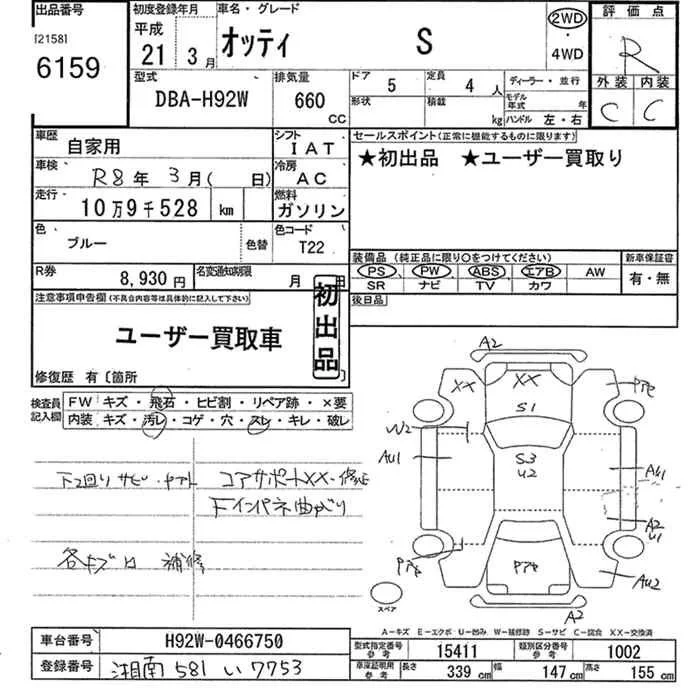 出品番号
[2158]
6159
初度登録年月
平成
21年 3月
車名・グレード
オッティ S
2WD
・
4WD
評価点
R
外装 内装
C C
型式
DBA-H92W
排気量
660 CC
ドア 5
定員 4 人
形状
積載 kg
ディーラー・並行
モデル年式 年
ハンドル 左・右
車歴 自家用
シフト IAT
車検 R8年 3月( 日)
冷房 AC
走行 10万9千528 km
燃料 ガソリン
色 ブルー
色替
色コード T22
R券 8,930円
名変通知期限 月 日
セールスポイント(正常に機能するものに限ります)
★初出品 ★ユーザー買取り
装備品 (純正品に限り○をつけてください)
新車保証書
PS PW ABS エアB AW
有・無
SR ナビ TV カワ
後日品
注意事項申告欄(不具合内容等は具体的に記入して下さい)
ユーザー買取車
初出品
修復歴 有〔箇所
検査員記入欄
FW キズ・飛石・ヒビ割・リペア跡・×要
内装 キズ・汚レ・コゲ・穴・スレ・キレ・破レ
下2回りサビ・ヤブレ コアサポートXX・修正
Fインパネ曲がり
各キズ有 補修
A2
XX
XX
S1
W2
Au1
S3
U2
Au1
A2
U1
Au2
A2
スペア
A-キズ E-エクボ U-凹み W-補修跡 S-サビ C-腐食 XX-交換済
車台番号 H92W-0466750
登録番号 湘南 581 い 7753
型式指定番号 参考 15411
類別区分番号 参考 1002
車庫証明用 参考 長さ 339 cm 幅 147 cm 高さ 155 cm